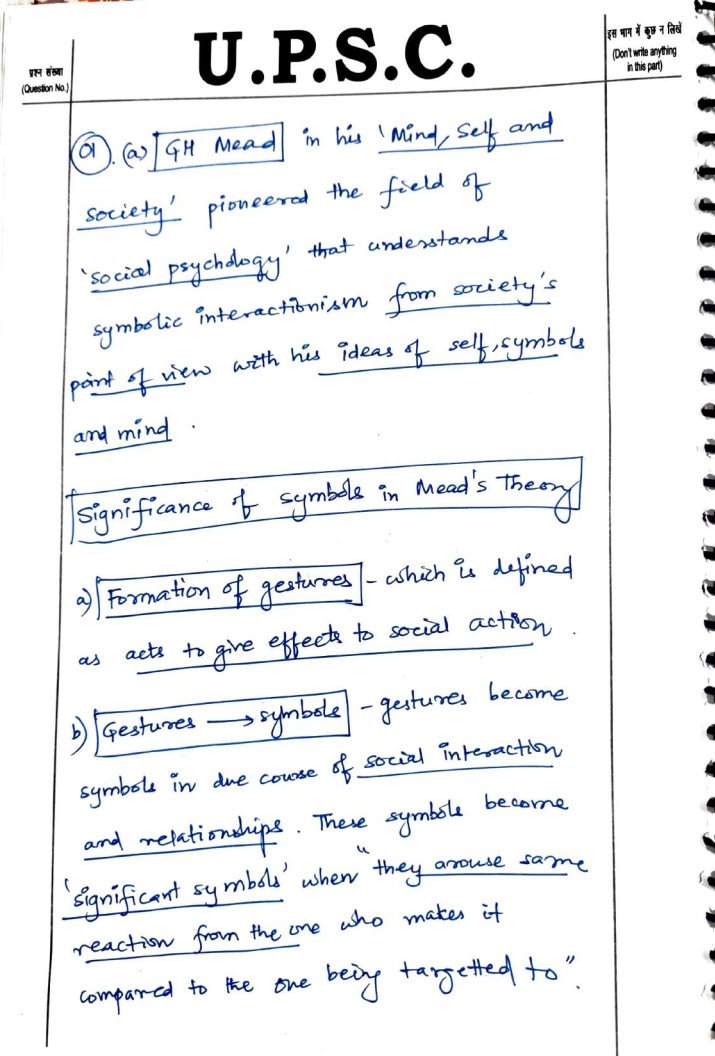 U.P.S.C.
प्रश्न संख्या
(Question No.)
इस भाग में कुछ न लिखें
(Don't write anything
in this part)
01. (a) GH Mead in his 'Mind, Self and
society' pioneered the field of
'social psychology' that understands
symbolic interactionism from society's
point of view with his ideas of self, symbols
and mind.
Significance of symbols in Mead's Theory
a) Formation of gestures - which is defined
as acts to give effects to social action.
b) Gestures → symbols - gestures become
symbols in due course of social interaction
and relationships. These symbols become
'significant symbols' when "they arouse same
reaction from the one who makes it
compared to the one being targetted to".